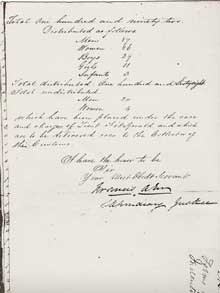 Total One hundred and ninety two.
Distributed as follows
Men 87
Women 26
Boys 39
Girls 11
Infants 5
Total distributed One hundred and Sixty eight
Total undistributed.
Men 20
Women 4
which have been placed under the care
and charge of Lieut Fitzgerald and which
are to be released over to the Collector of
the Customs.
I have the honor to be
Sir
Your Most Obedt Servant